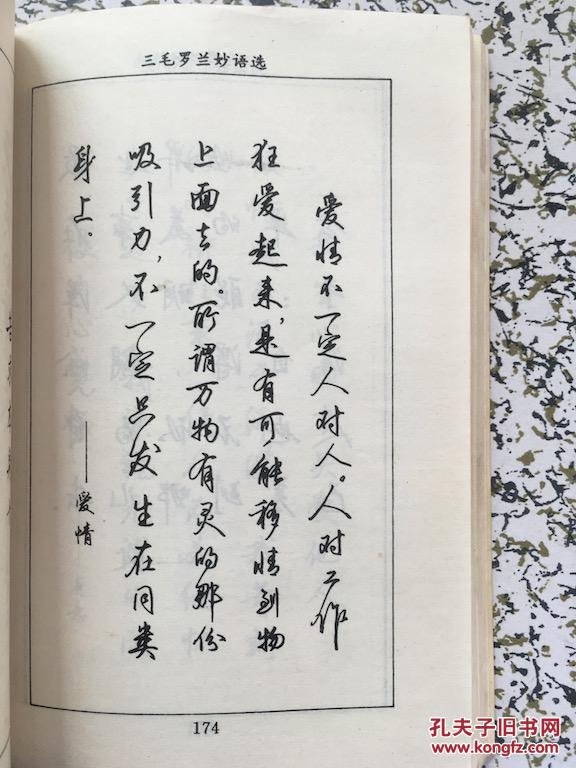 三毛罗兰妙语选
爱情不一定人对人。人对工作
狂爱起来，是有可能移情到物
上面去的。所谓万物有灵的那份
吸引力，不一定只发生在同类
身上。
——爱情
174
孔夫子旧书网
www.kongfz.com